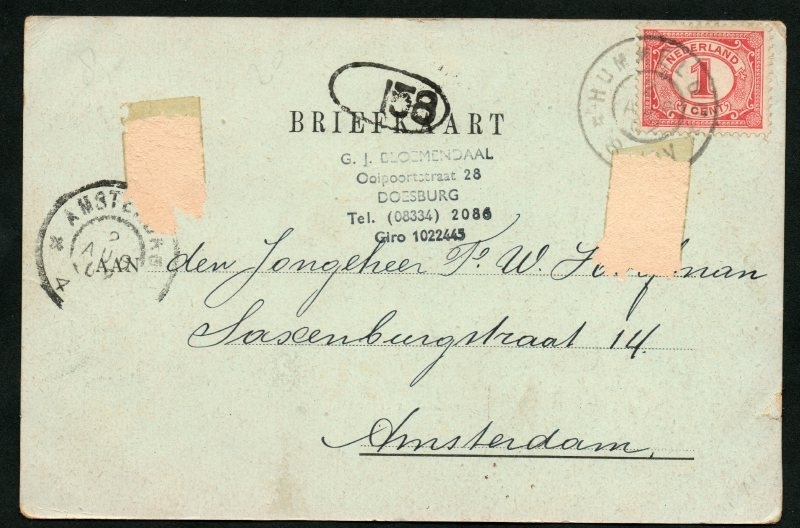 58
NEDERLAND
1
1 CENT
BRIEFKAART
G. J. BLOEMENDAAL
Ooipoortstraat 28
DOESBURG
Tel. (08334) 2086
Giro 1022445
AMSTERDAM
2
AUG
4
AAN den Jongeheer F. W.
Saxenburgstraat 14.
Amsterdam.